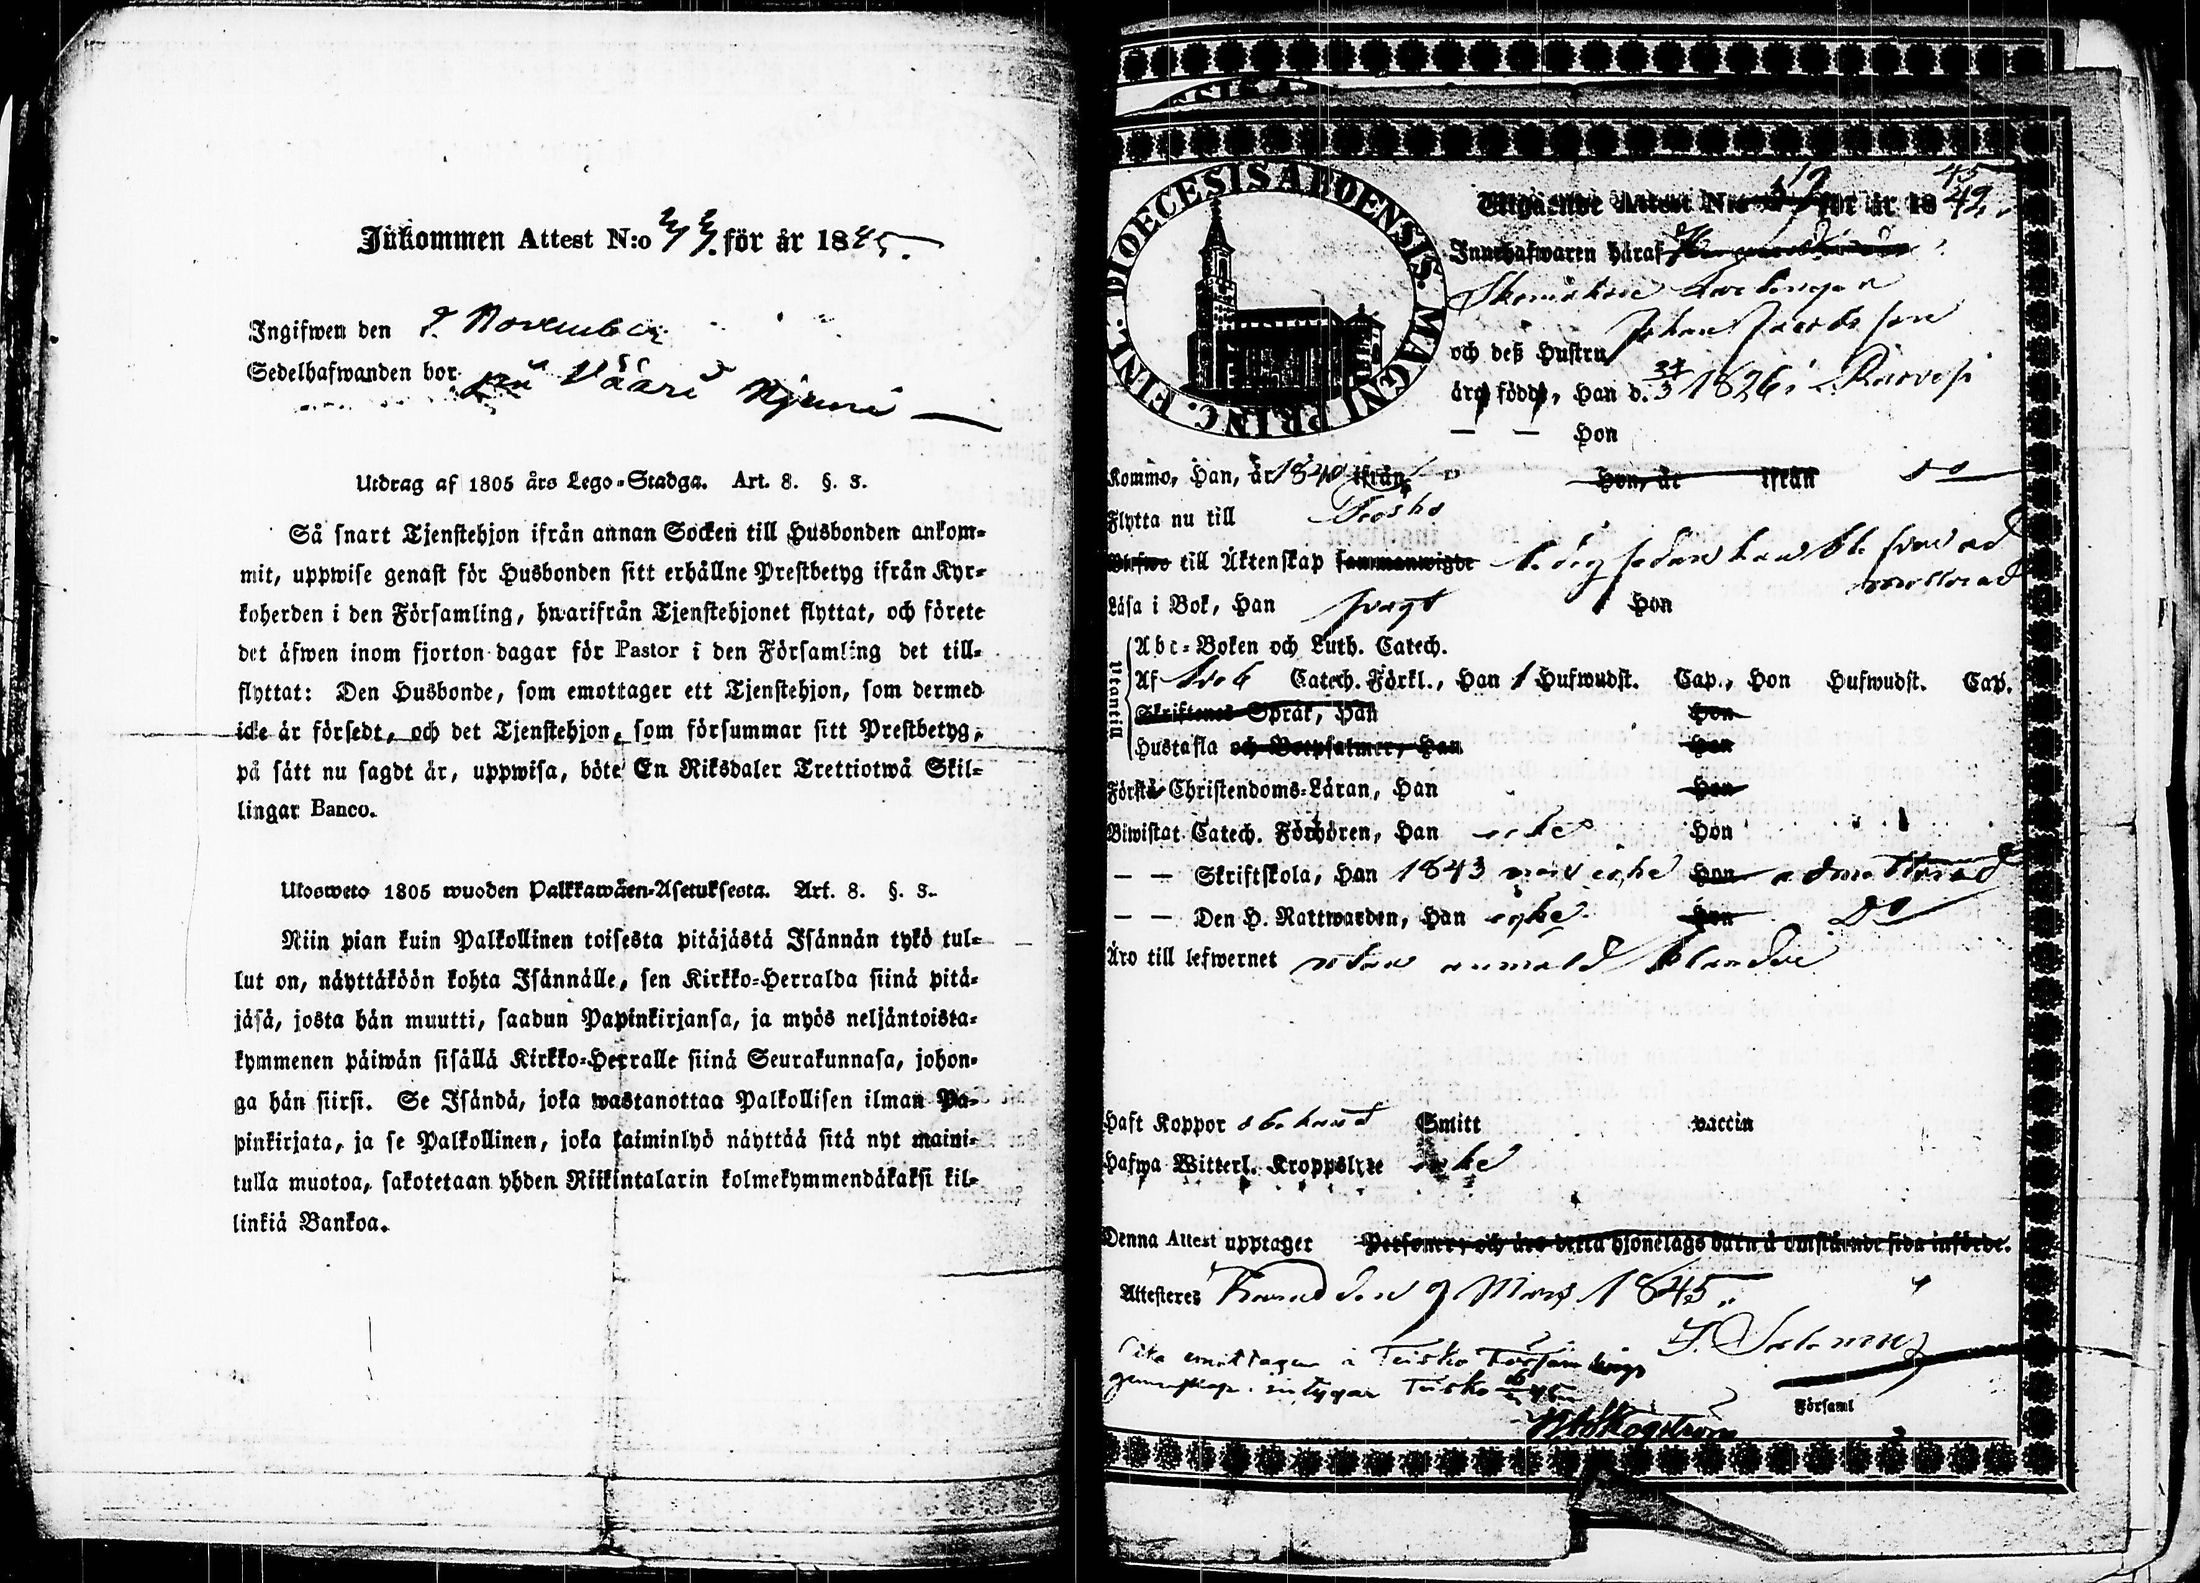 Inkommen Attest N:o för år 1845.
Ingifwen den 9. November
Sedelhafwanden bor på Vääri Njemi
Utdrag af 1805 års Lego-Stadga. Art. 8. §. 3.
Så snart Tjenstehjon ifrån annan Socken till Husbonden ankom-
mit, uppwise genast för Husbonden sitt erhållne Prestbetyg ifrån Kyr-
koherden i den Församling, hwarifrån Tjenstehjonet flyttat, och förete
det äfwen inom fjorton dagar för Pastor i den Församling det till-
flyttat: Den Husbonde, som emottager ett Tjenstehjon, som dermed
icke är försedt, och det Tjenstehjon, som försummar sitt Prestbetyg,
på sätt nu sagdt är, uppwisa, böte En Riksdaler Trettiotwå Skil-
lingar Banco.
Utosweto 1805 wuoden Palkkawäen-Asetuksesta. Art. 8. §. 3.
Niin pian kuin Palkollinen toisesta pitäjästä Isännän tykö tul-
lut on, näyttäköön kohta Isännälle, sen Kirkko-Herralda siinä pitä-
jäsä, josta hän muutti, saadun Papinkirjansa, ja myös neljäntoista-
kymmenen päiwän sisällä Kirkko-Herralle siinä Seurakunnasa, johon-
ga hän siirsi. Se Isändä, joka wastanottaa Palkollisen ilman Pa-
pinkirjata, ja se Palkollinen, joka laiminlyö näyttää sitä nyt maini-
tulla muotoa, sakotetaan yhden Riikintalarin kolmekymmendäkaksi kil-
linkiä Bankoa.
DIOECESIS ABOENSIS. MAGNI PRINC. FINL.
Utgående Attest N:o 19 för år 18 45 42.
Innehafwaren häraf
Skomakare Lärlingen
Johan Jacobsson
och deß Hustru
äro födde, Han d. 31/3 1826 i Ruovesi
— — Hon
Kommo, Han, år 1840 ifrån Hon, år ifrån
Flytta nu till Teisko
Blefwo till Äktenskap sammanwigde ledig sedan han bli
Läsa i Bok, Han svagt Hon
Utantill
Abc-Boken och Luth. Catech.
Af Catech. Förkl., Han 1 Hufwudst. Cap., Hon Hufwudst. Cap.
Skriftenes Språk, Han Hon
Hustafla och Botpsalmer, Han Hon
Förstå Christendoms-Läran, Han Hon
Biwistat Catech. Förhören, Han icke Hon
— — Skriftskola, Han 1843 men icke Hon admitterad
— — Den H. Nattwarden, Han icke Hon Do
Äro till lefwernet utan anmäld klander
Haft Koppor obekant Smitt vaccin
Hafwa Witterl. Kroppslyte icke
Denna Attest upptager Personer, och äro detta hjonelags barn å omstående sida införde.
Attesteres den 9 Mars 1845.
emottagen i Teisko Församlings
gemenskap intygar Teisko
Församl
Skogström